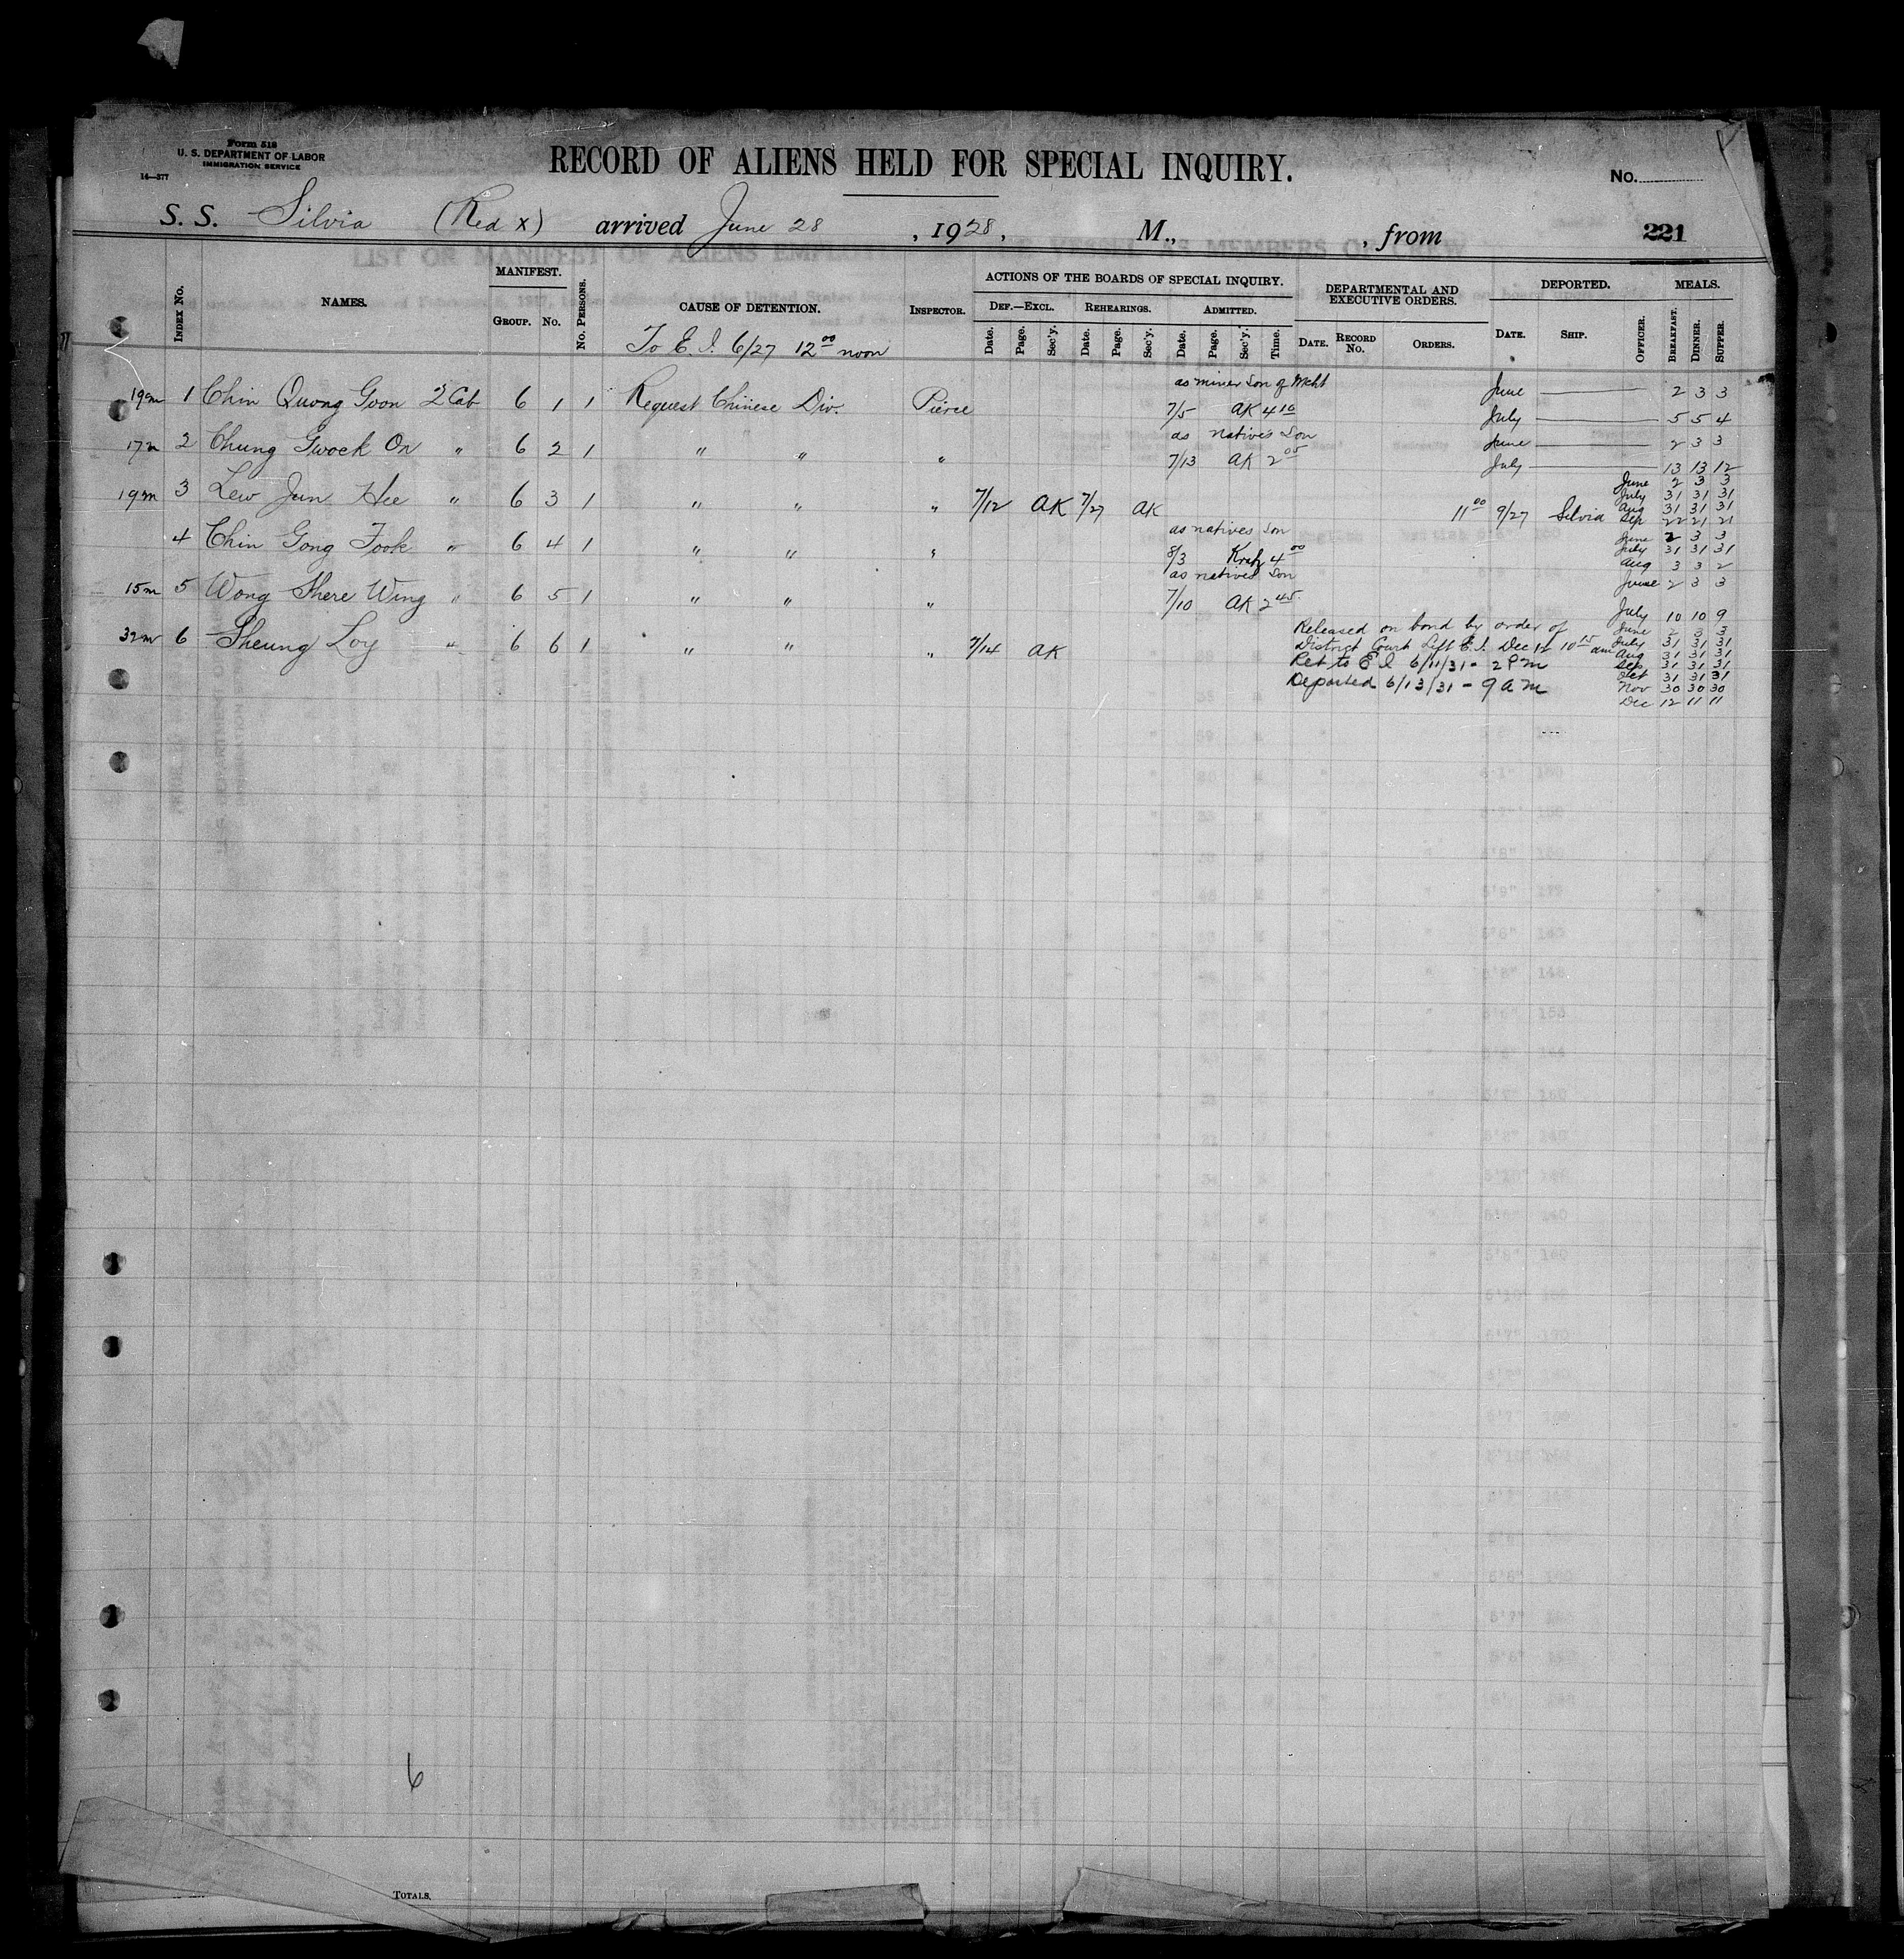 Form 518
U. S. DEPARTMENT OF LABOR
IMMIGRATION SERVICE
14—577
RECORD OF ALIENS HELD FOR SPECIAL INQUIRY.
No.
S. S. Silvia (Red X) arrived June 28, 1928, M., , from
221
LIST OR MANIFEST OF ALIENS EMPLOYED VESSEL AS MEMBERS OF CREW
Index No. NAMES. MANIFEST. Group. No. No. Persons. CAUSE OF DETENTION. Inspector. ACTIONS OF THE BOARDS OF SPECIAL INQUIRY. DEPARTMENTAL AND EXECUTIVE ORDERS. DEPORTED. MEALS.
Def.—Excl. Rehearings. Admitted.
Date. Page. Sec'y. Date. Page. Sec'y. Date. Page. Sec'y. Time. Date. Record No. Orders. Date. Ship. Officer. Breakfast. Dinner. Supper.
To E. I. 6/27 12 00 noon
as minor Son of Mcht June 2 3 3
19m 1 Chin Quong Goon 2 Cab 6 1 1 Request Chinese Div. Pierce 7/5 AK 4 10 July 5 5 4
as natives Son June 2 3 3
17m 2 Chung Gwock On " 6 2 1 " " " 7/13 AK 2 05 July 13 13 12
June 2 3 3
July 31 31 31
19m 3 Lew Jun Hee " 6 3 1 " " " 7/12 AK 7/27 AK 11 00 9/27 Silvia Aug 31 31 31
Sep 22 21 21
as natives Son June 2 3 3
4 Chin Gong Fook " 6 4 1 " " " 8/3 4 00 July 31 31 31
Aug 3 3 2
as natives Son June 2 3 3
15m 5 Wong Shere Wing " 6 5 1 " " " 7/10 AK 2 45 July 10 10 9
Released on bond by order of June 2 3 3
32m 6 Sheung Loy " 6 6 1 " " " 7/14 AK District Court Left E. I. Dec 12 10 15 am July 31 31 31
Ret to E I 6/11/31 - 2 PM Aug 31 31 31
Sep 31 31 31
Deported 6/13/31 - 9 a m Oct 31 31 31
Nov 30 30 30
Dec 12 11 11
6
Totals.